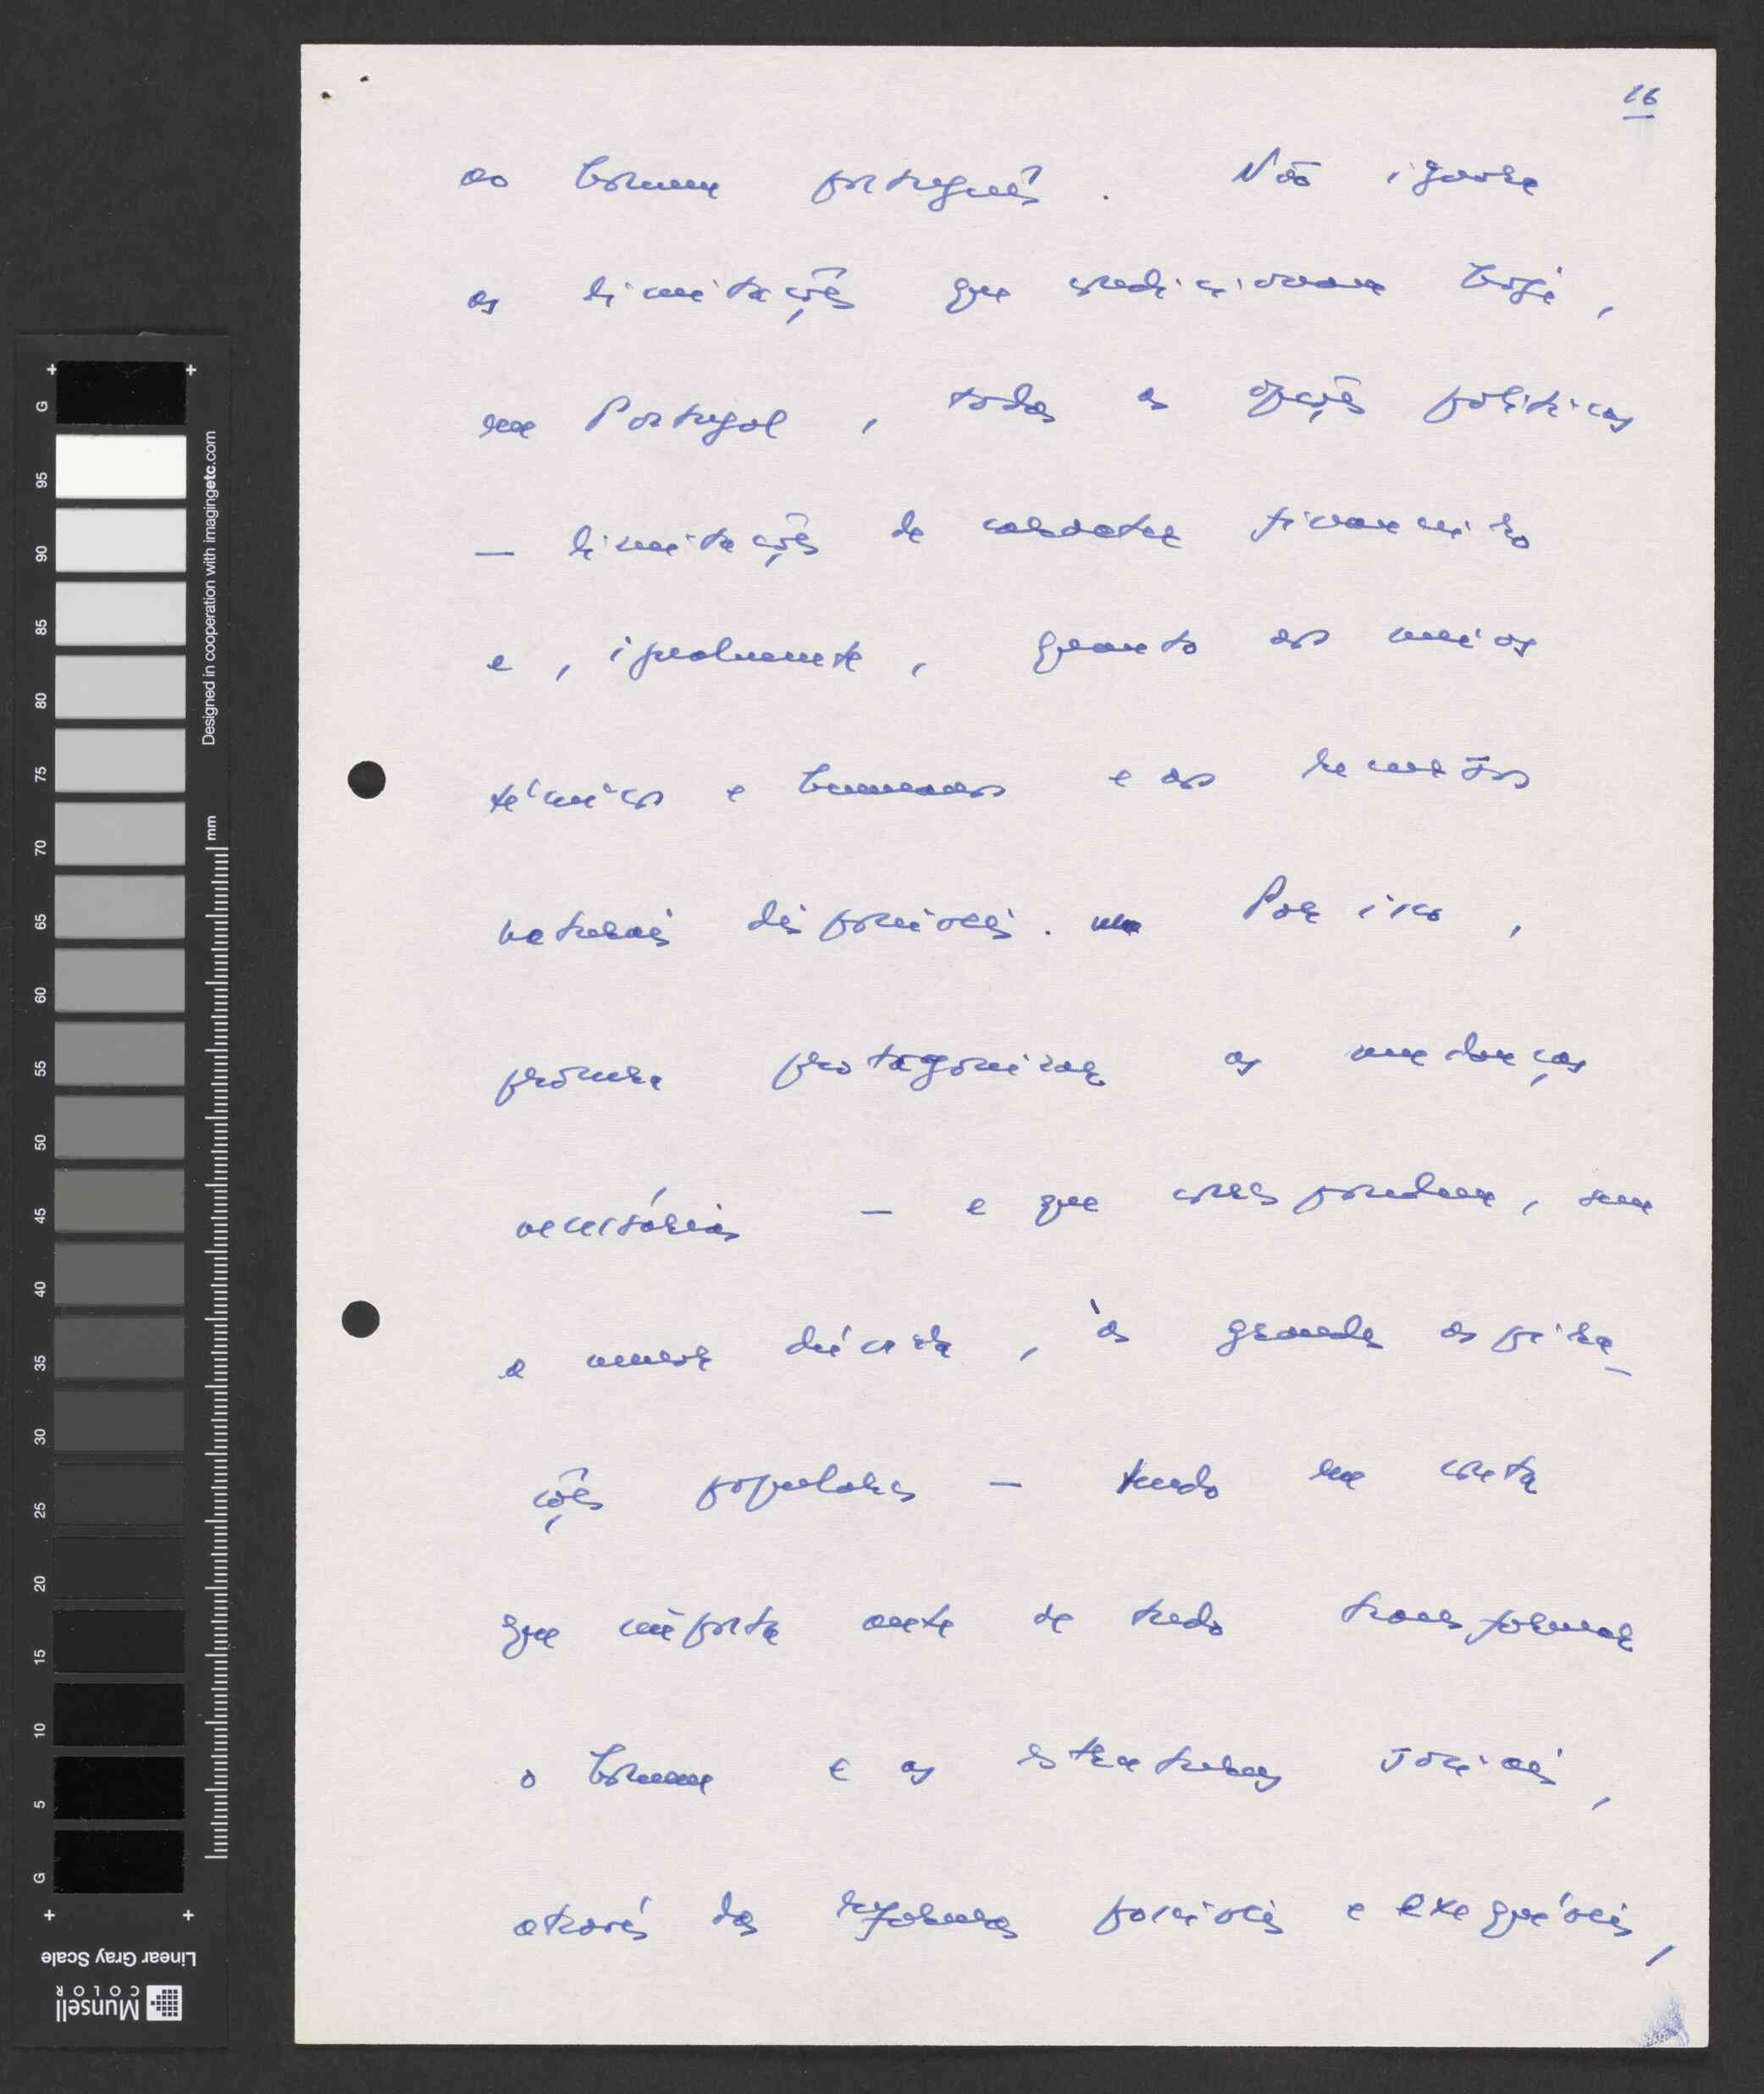 16
ao homem português. Não ignora
as limitações que condicionam hoje,
em Portugal, todas as opções políticas
— limitações de carácter financeiro
e, igualmente, quanto aos meios
técnicos e humanos e aos recursos
naturais disponíveis. Por isso,
procura protagonizar as mudanças
necessárias — e que correspondem, sem
a menor dúvida, às grandes aspira-
ções populares — tendo em conta
que importa antes de tudo transformar
o homem e as estruturas sociais,
através das reformas possíveis e exequíveis,
G 95 90 85 80 75 70 65 60 55 50 45 40 35 30 25 20 15 10 5 G
Designed in cooperation with imagingetc.com
mm
Linear Gray Scale
Munsell
COLOR